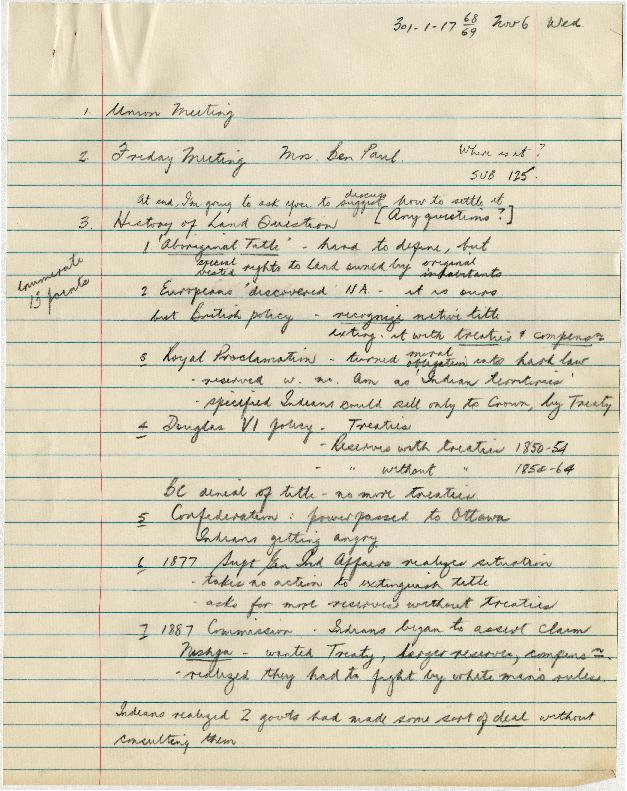 301-1-17 68/69 Nov 6 Wed.
1. Union Meeting
2 Friday Meeting Mrs. Ben Paul. Where is it?
SUB 125.
At end, I'm going to ask you to suggest discuss how to settle it
3. History of Land Question [Any questions?]
enumerate
13 points
1 'Aboriginal Title' - hard to define, but
special vested rights to land owned by original inhabitants
2 Europeans 'discovered' NA - it is ours
but British policy - recognize native title
exting. it with treaties & compens~
3 Royal Proclamation - turned moral obligation into hard law
- reserved w. no. Am as 'Indian territories'
- specified Indians could sell only to Crown, by Treaty
4 Douglas VI policy - Treaties
- Reserves with treaties 1850-54
- " without " 1854-64
BC denial of title - no more treaties
5 Confederation : power passed to Ottawa
Indians getting angry
6 1877 Supt Gen Ind Affairs realizes situation
- takes no action to extinguish title
- asks for more reserves without treaties
7 1887 Commission - Indians began to assert claim
Nishga - wanted Treaty, larger reserves, compens~.
- realized they had to fight by white man's rules.
Indians realized 2 govts had made some sort of deal without
consulting them